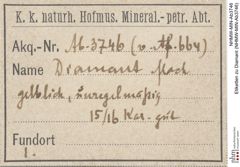 K. k. naturh. Hofmus. Mineral.-petr. Abt.
Akq.-Nr. Ab-3746 (v. Ap. 664)
Name Diamant
gelblich, unregelmäßig
15/16 Kar. gut
Fundort
1.
NHMW-MIN-Ab3746
Etiketten zu Diamant (NHMW-MIN-Ab3746)